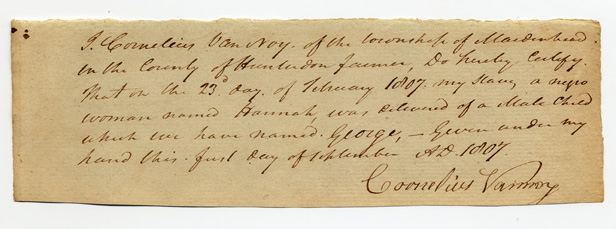 I. Cornelius Van Noy. of the township of Maidenhead
in the County of Hunterdon farmer, Do hereby Certify.
that on the 23d day. of February 1807. my slave, a negro
woman named Hannah, was delivered of a Male Child
which we have named. George, – Given under my
hand this. first Day of September AD. 1807.
Coornelius Vannoy